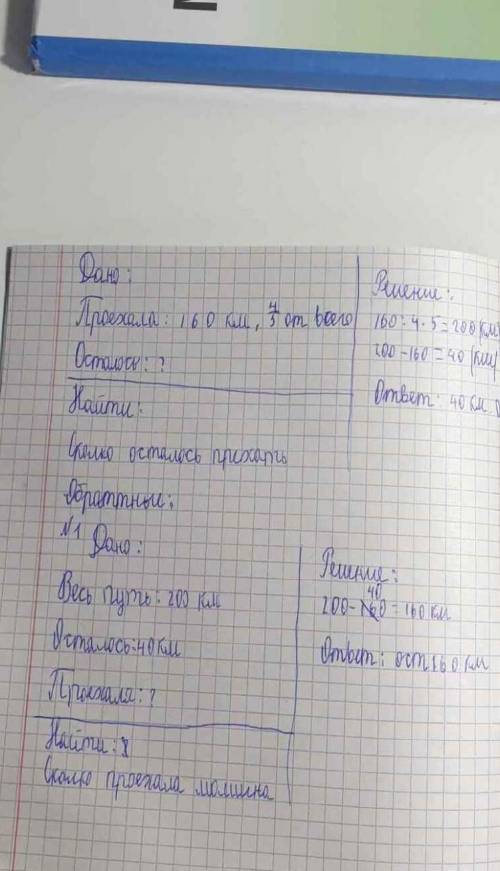 Дано:
Проехала: 160 км, 4/5 от всего
Осталось: ?
Найти:
Сколко осталось
Решение:
160:4·5=200(км)
200-160=40(км)
Ответ: 40 км
Обратные:
№1 Дано:
Весь путь: 200 км
Осталось:40км
Проехала: ?
Найти:
Сколко проехала машина
Решение:
200-40=160км
Ответ: ост160 км